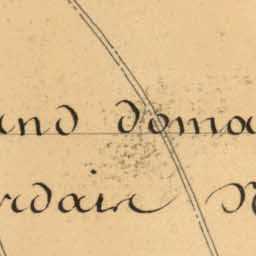 and doma
rdair N